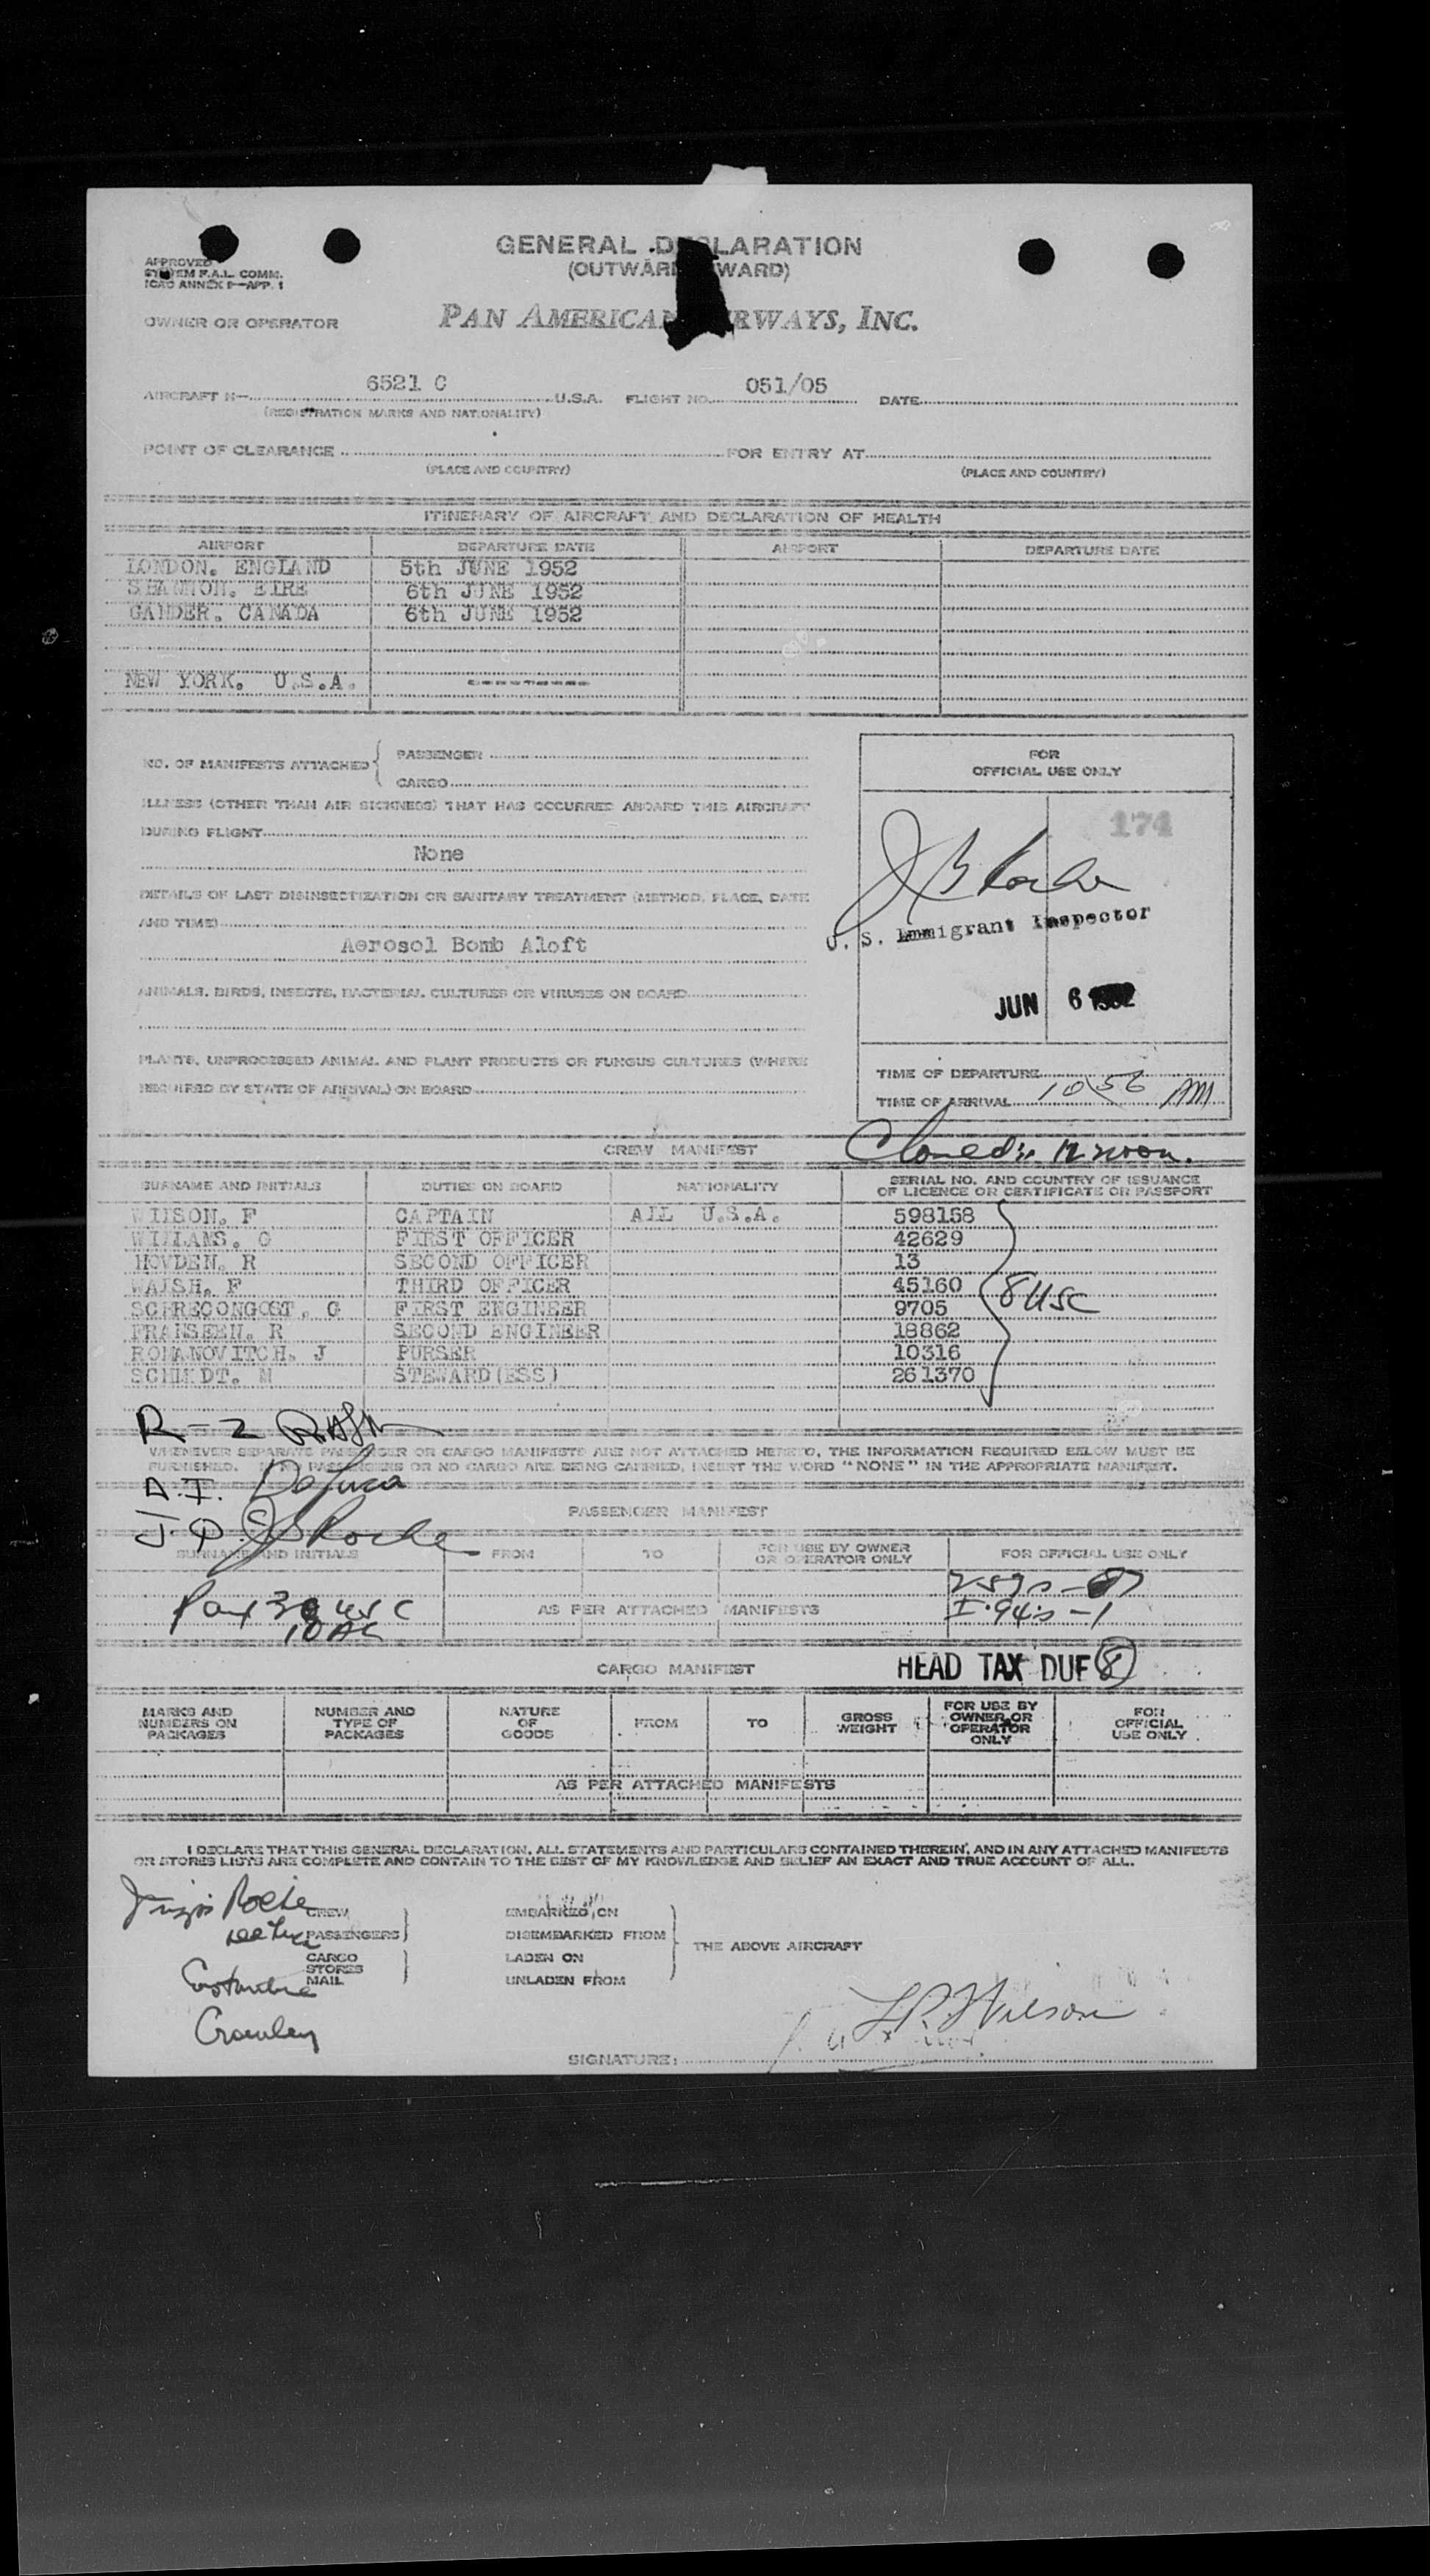 GENERAL DECLARATION
(OUTWARD WARD)
APPROVED
SYSTEM F.A.L. COMM.
ICAO ANNEX 9—APP. 1
OWNER OR OPERATOR PAN AMERICAN AIRWAYS, INC.
AIRCRAFT N— 6521 C U.S.A. FLIGHT NO. 051/05 DATE
(REGISTRATION MARKS AND NATIONALITY)
POINT OF CLEARANCE FOR ENTRY AT
(PLACE AND COUNTRY) (PLACE AND COUNTRY)
ITINERARY OF AIRCRAFT AND DECLARATION OF HEALTH
AIRPORT DEPARTURE DATE AIRPORT DEPARTURE DATE
LONDON. ENGLAND 5th JUNE 1952
SHANNON. EIRE 6th JUNE 1952
GANDER. CANADA 6th JUNE 1952
NEW YORK. U.S.A. ----------
NO. OF MANIFESTS ATTACHED { PASSENGER
CARGO
ILLNESS (OTHER THAN AIR SICKNESS) THAT HAS OCCURRED ABOARD THIS AIRCRAFT
DURING FLIGHT
None
DETAILS OF LAST DISINSECTIZATION OR SANITARY TREATMENT (METHOD, PLACE, DATE
AND TIME)
Aerosol Bomb Aloft
ANIMALS, BIRDS, INSECTS, BACTERIAL CULTURES OR VIRUSES ON BOARD
PLANTS, UNPROCESSED ANIMAL AND PLANT PRODUCTS OR FUNGUS CULTURES (WHERE
REQUIRED BY STATE OF ARRIVAL) ON BOARD
FOR
OFFICIAL USE ONLY
174
J B Roche
U. S. Immigrant Inspector
JUN 6 1952
TIME OF DEPARTURE
TIME OF ARRIVAL 10 56 AM
CREW MANIFEST
12 noon.
SURNAME AND INITIALS DUTIES ON BOARD NATIONALITY SERIAL NO. AND COUNTRY OF ISSUANCE
OF LICENCE OR CERTIFICATE OR PASSPORT
WILSON. F CAPTAIN ALL U.S.A. 598158
WILLIAMS. G FIRST OFFICER 42629
HOVDEN. R SECOND OFFICER 13
WALSH. F THIRD OFFICER 45160
SCHRECONGOST. G FIRST ENGINEER 9705
FRANSEEN. R SECOND ENGINEER 18862
ROMANOVITCH. J PURSER 10316
SCHMIDT. M STEWARD(ESS) 261370
8 USC
R-2
WHENEVER SEPARATE PASSENGER OR CARGO MANIFESTS ARE NOT ATTACHED HERETO, THE INFORMATION REQUIRED BELOW MUST BE
FURNISHED. IF NO PASSENGERS OR NO CARGO ARE BEING CARRIED, INSERT THE WORD "NONE" IN THE APPROPRIATE MANIFEST.
D.I. DeLuca
J.P. JB Roche
PASSENGER MANIFEST
SURNAME AND INITIALS FROM TO FOR USE BY OWNER
OR OPERATOR ONLY FOR OFFICIAL USE ONLY
Pax USC
10 AC
AS PER ATTACHED MANIFESTS
I.94's -1
CARGO MANIFEST HEAD TAX DUE 8
MARKS AND
NUMBERS ON
PACKAGES NUMBER AND
TYPE OF
PACKAGES NATURE
OF
GOODS FROM TO GROSS
WEIGHT FOR USE BY
OWNER OR
OPERATOR
ONLY FOR
OFFICIAL
USE ONLY
AS PER ATTACHED MANIFESTS
I DECLARE THAT THIS GENERAL DECLARATION, ALL STATEMENTS AND PARTICULARS CONTAINED THEREIN, AND IN ANY ATTACHED MANIFESTS
OR STORES LISTS ARE COMPLETE AND CONTAIN TO THE BEST OF MY KNOWLEDGE AND BELIEF AN EXACT AND TRUE ACCOUNT OF ALL.
Roche
DeLuca
Crowley
CREW
PASSENGERS
CARGO
STORES
MAIL
EMBARKED ON
DISEMBARKED FROM
LADEN ON
UNLADEN FROM
THE ABOVE AIRCRAFT
Wilson
SIGNATURE: